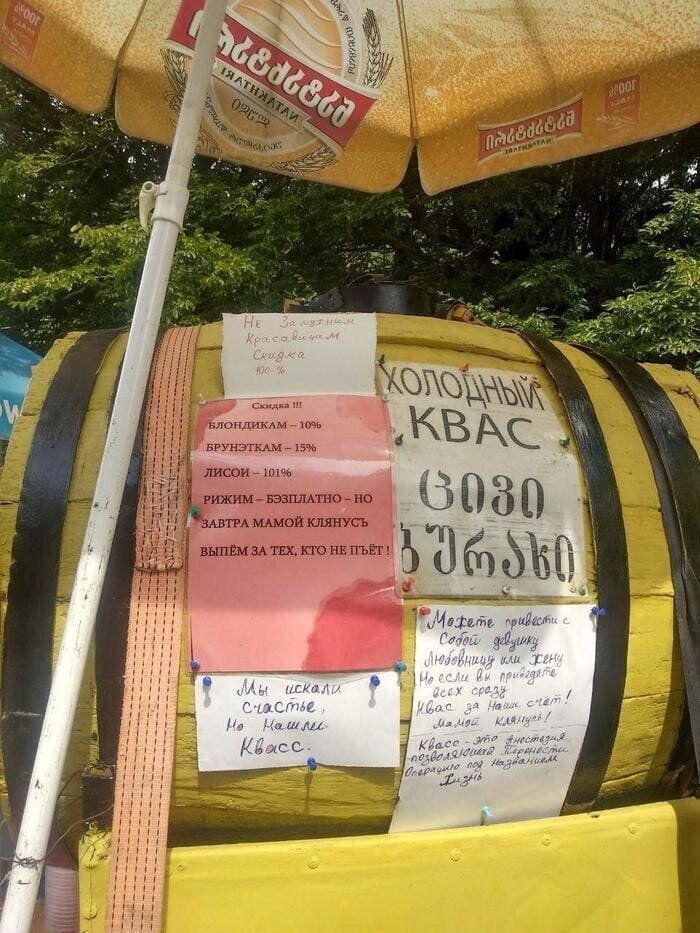 100% MALT
ნატახტარი
NATAKHTARI
ლუდი
ნატახტარი
NATAKHTARI
100% MALT
Не Замужним
Красавицам
Скидка
100-%
Скидка !!!
БЛОНДИКАМ – 10%
БРУНЭТКАМ – 15%
ЛИСОИ – 101%
РИЖИМ – БЭЗПЛАТНО – НО
ЗАВТРА МАМОЙ КЛЯНУСЪ
ВЫПЁМ ЗА ТЕХ, КТО НЕ ПЪЁТ !
ХОЛОДНЫЙ
КВАС
ცივი
ბურახი
Мы искали
счастье,
Но Нашли
Квасс.
Можете привести с
Собой девушку
Любовницу или Жену
Но если вы приведёте
всех сразу
Квас за Наш счёт!
Мамой Клянусь!
Квасс - это Анестезия
позволяющая Перенести
Операцию под названием
Жизнь